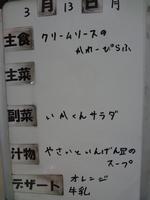 3月13日月
主食 クリームソースの
かれーぴらふ
主菜
副菜 いかくんサラダ
汁物 やさいといんげん豆の
スープ
デザート オレンジ
牛乳